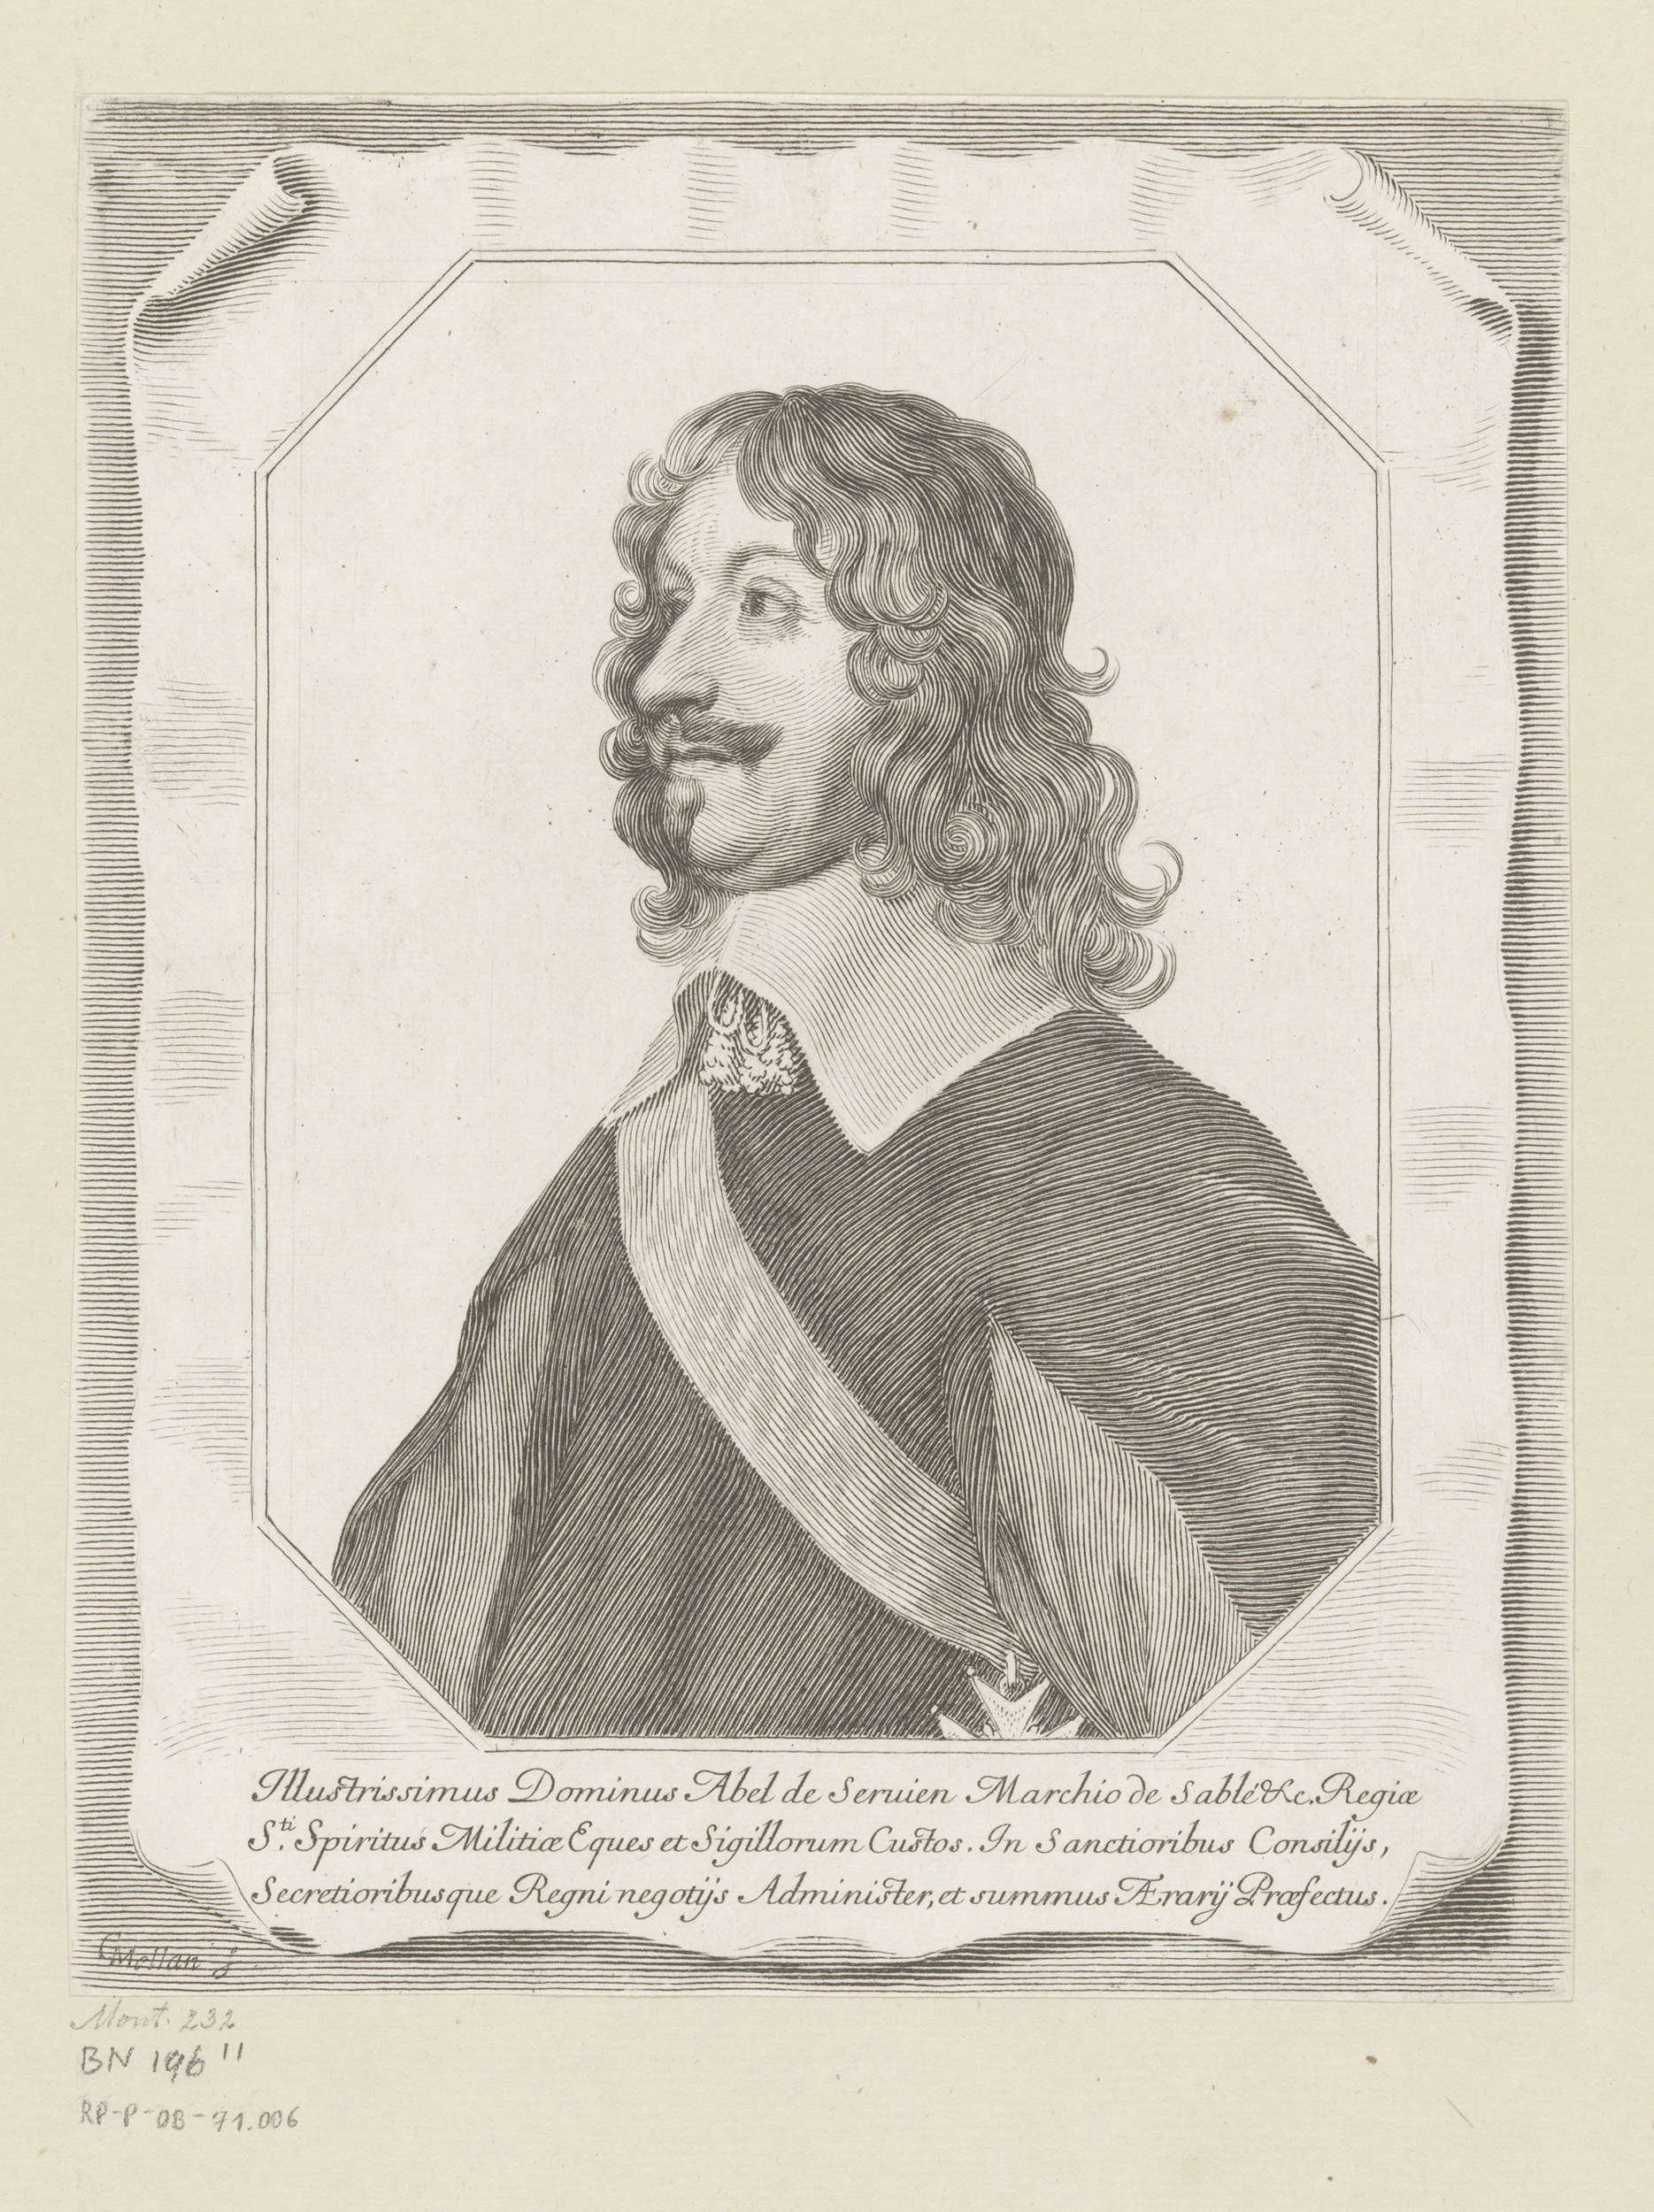 Illustrissimus Dominus Abel de Seruien Marchio de Sablé &c. Regiæ
S.ti Spiritus Militiæ Eques et Sigillorum Custos. In Sanctioribus Consilijs,
Secretioribusque Regni negotijs Administer, et summus Ærarij Præfectus.
CMellan f
Mont. 232
BN 196 II
RP-P-OB-71.006